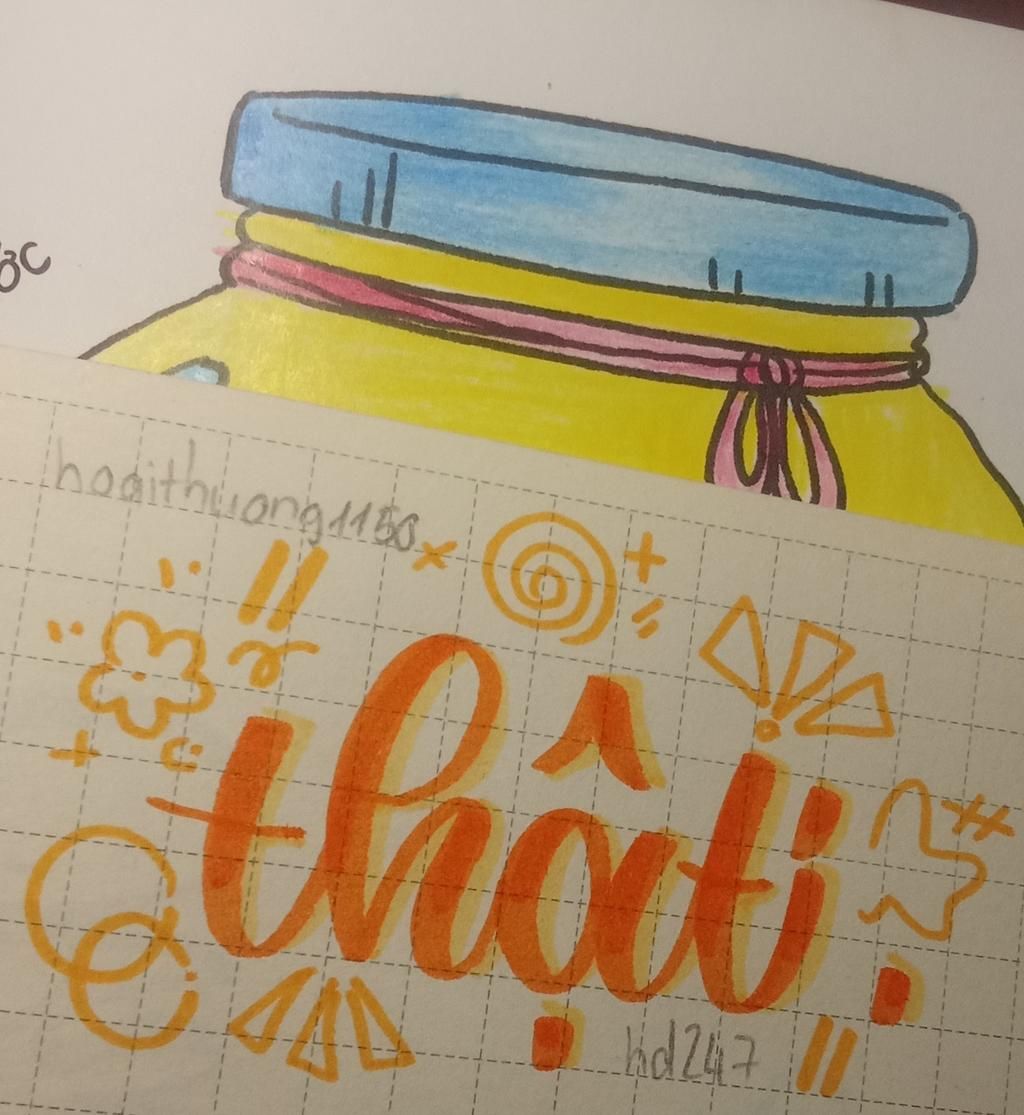 hoaithuong1150
thật.
hd247